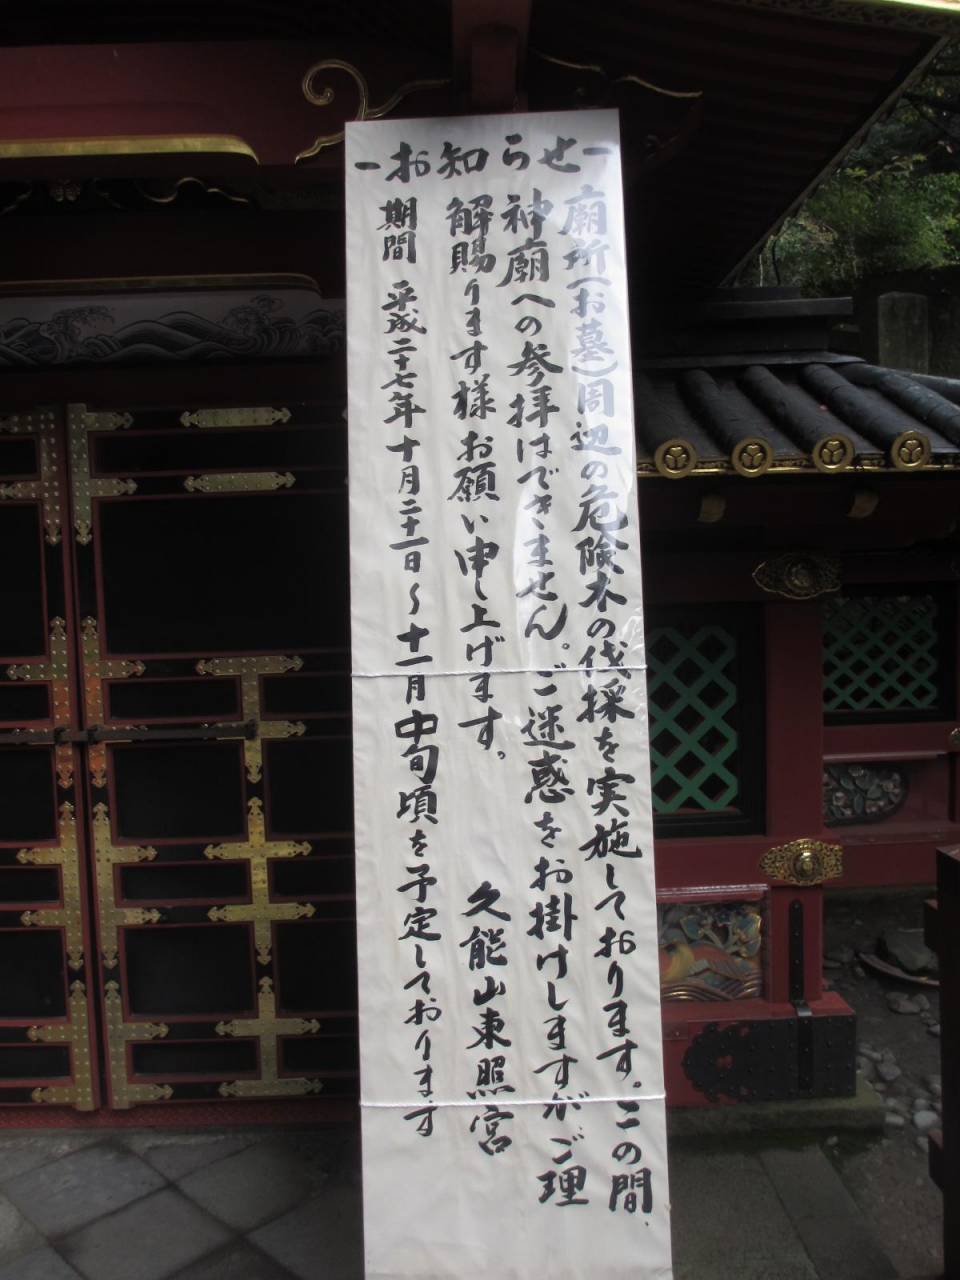 －お知らせ－
廟所(お墓)周辺の危険木の伐採を実施しております。この間、
神廟への参拝はできません。ご迷惑をお掛けしますが、ご理
解賜ります様お願い申し上げます。 久能山東照宮
期間 平成二十七年十月二十一日～十一月中旬頃を予定しております